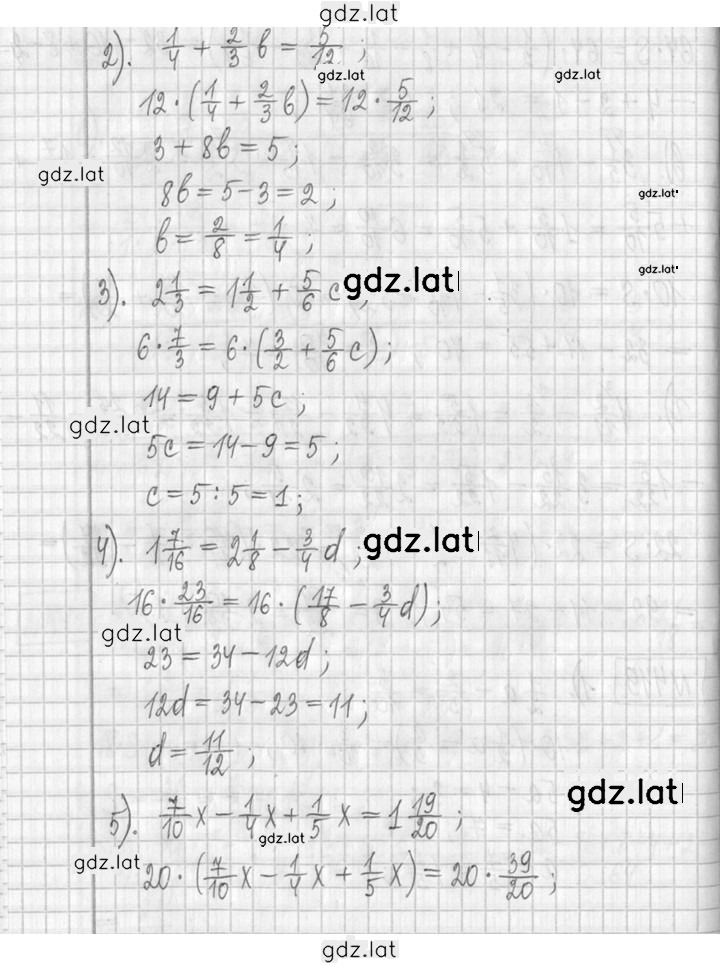 gdz.lat
2). 1/4 + 2/3 b = 5/12 ;
gdz.lat
gdz.lat
12 · (1/4 + 2/3 b) = 12 · 5/12 ;
3 + 8b = 5 ;
gdz.lat
8b = 5 - 3 = 2 ;
gdz.lat
b = 2/8 = 1/4 ;
gdz.lat
3). 2 1/3 = 1 1/2 + 5/6 c ;
gdz.lat
6 · 7/3 = 6 · (3/2 + 5/6 c) ;
14 = 9 + 5c ;
gdz.lat
5c = 14 - 9 = 5 ;
c = 5 : 5 = 1 ;
4). 1 7/16 = 2 1/8 - 3/4 d ;
gdz.lat
16 · 23/16 = 16 · (17/8 - 3/4 d) ;
gdz.lat
23 = 34 - 12d ;
12d = 34 - 23 = 11 ;
d = 11/12 ;
gdz.lat
5). 7/10 x - 1/4 x + 1/5 x = 1 19/20 ;
gdz.lat
gdz.lat
20 · (7/10 x - 1/4 x + 1/5 x) = 20 · 39/20 ;
gdz.lat